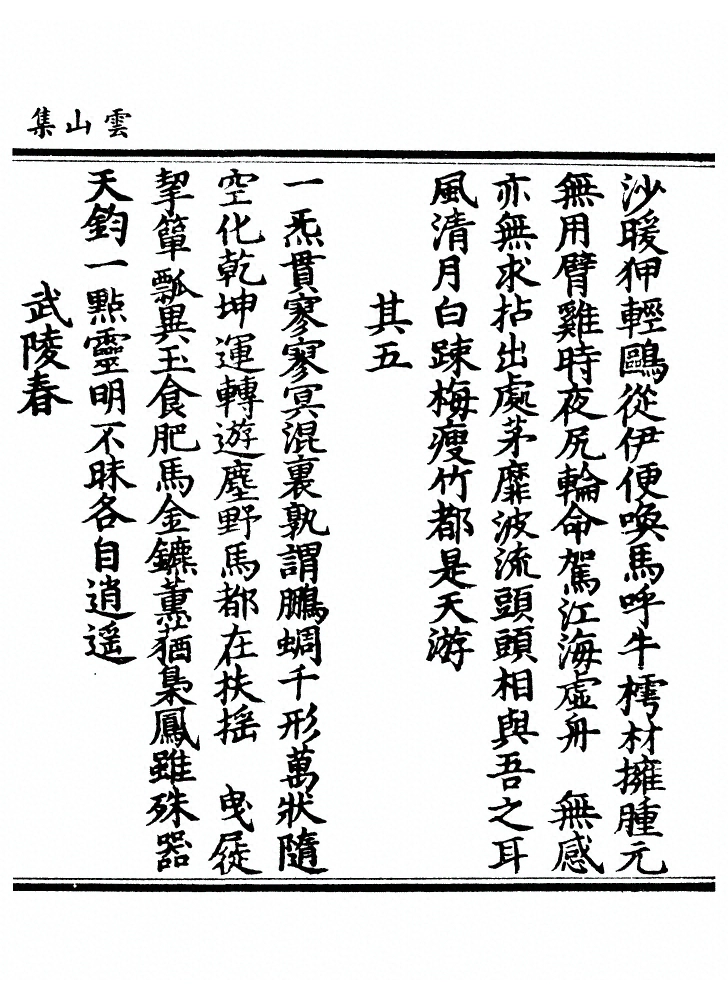 雲山集
沙暖狎輕鷗從伊便喚馬呼牛樗材擁腫元
無用臂雞時夜尻輪命駕江海虛舟　無感
亦無求拈出處茅靡波流頭頭相與吾之耳
風清月白踈梅瘦竹都是天游
其五
一炁貫寥寥冥混裏孰謂鵬蜩千形萬狀隨
空化乾坤運轉遊塵野馬都在扶摇　曳屣
挈簞瓢異玉食肥馬金鑣薰蕕梟鳳雖殊器
天鈞一點靈明不昧各自逍遥
武陵春